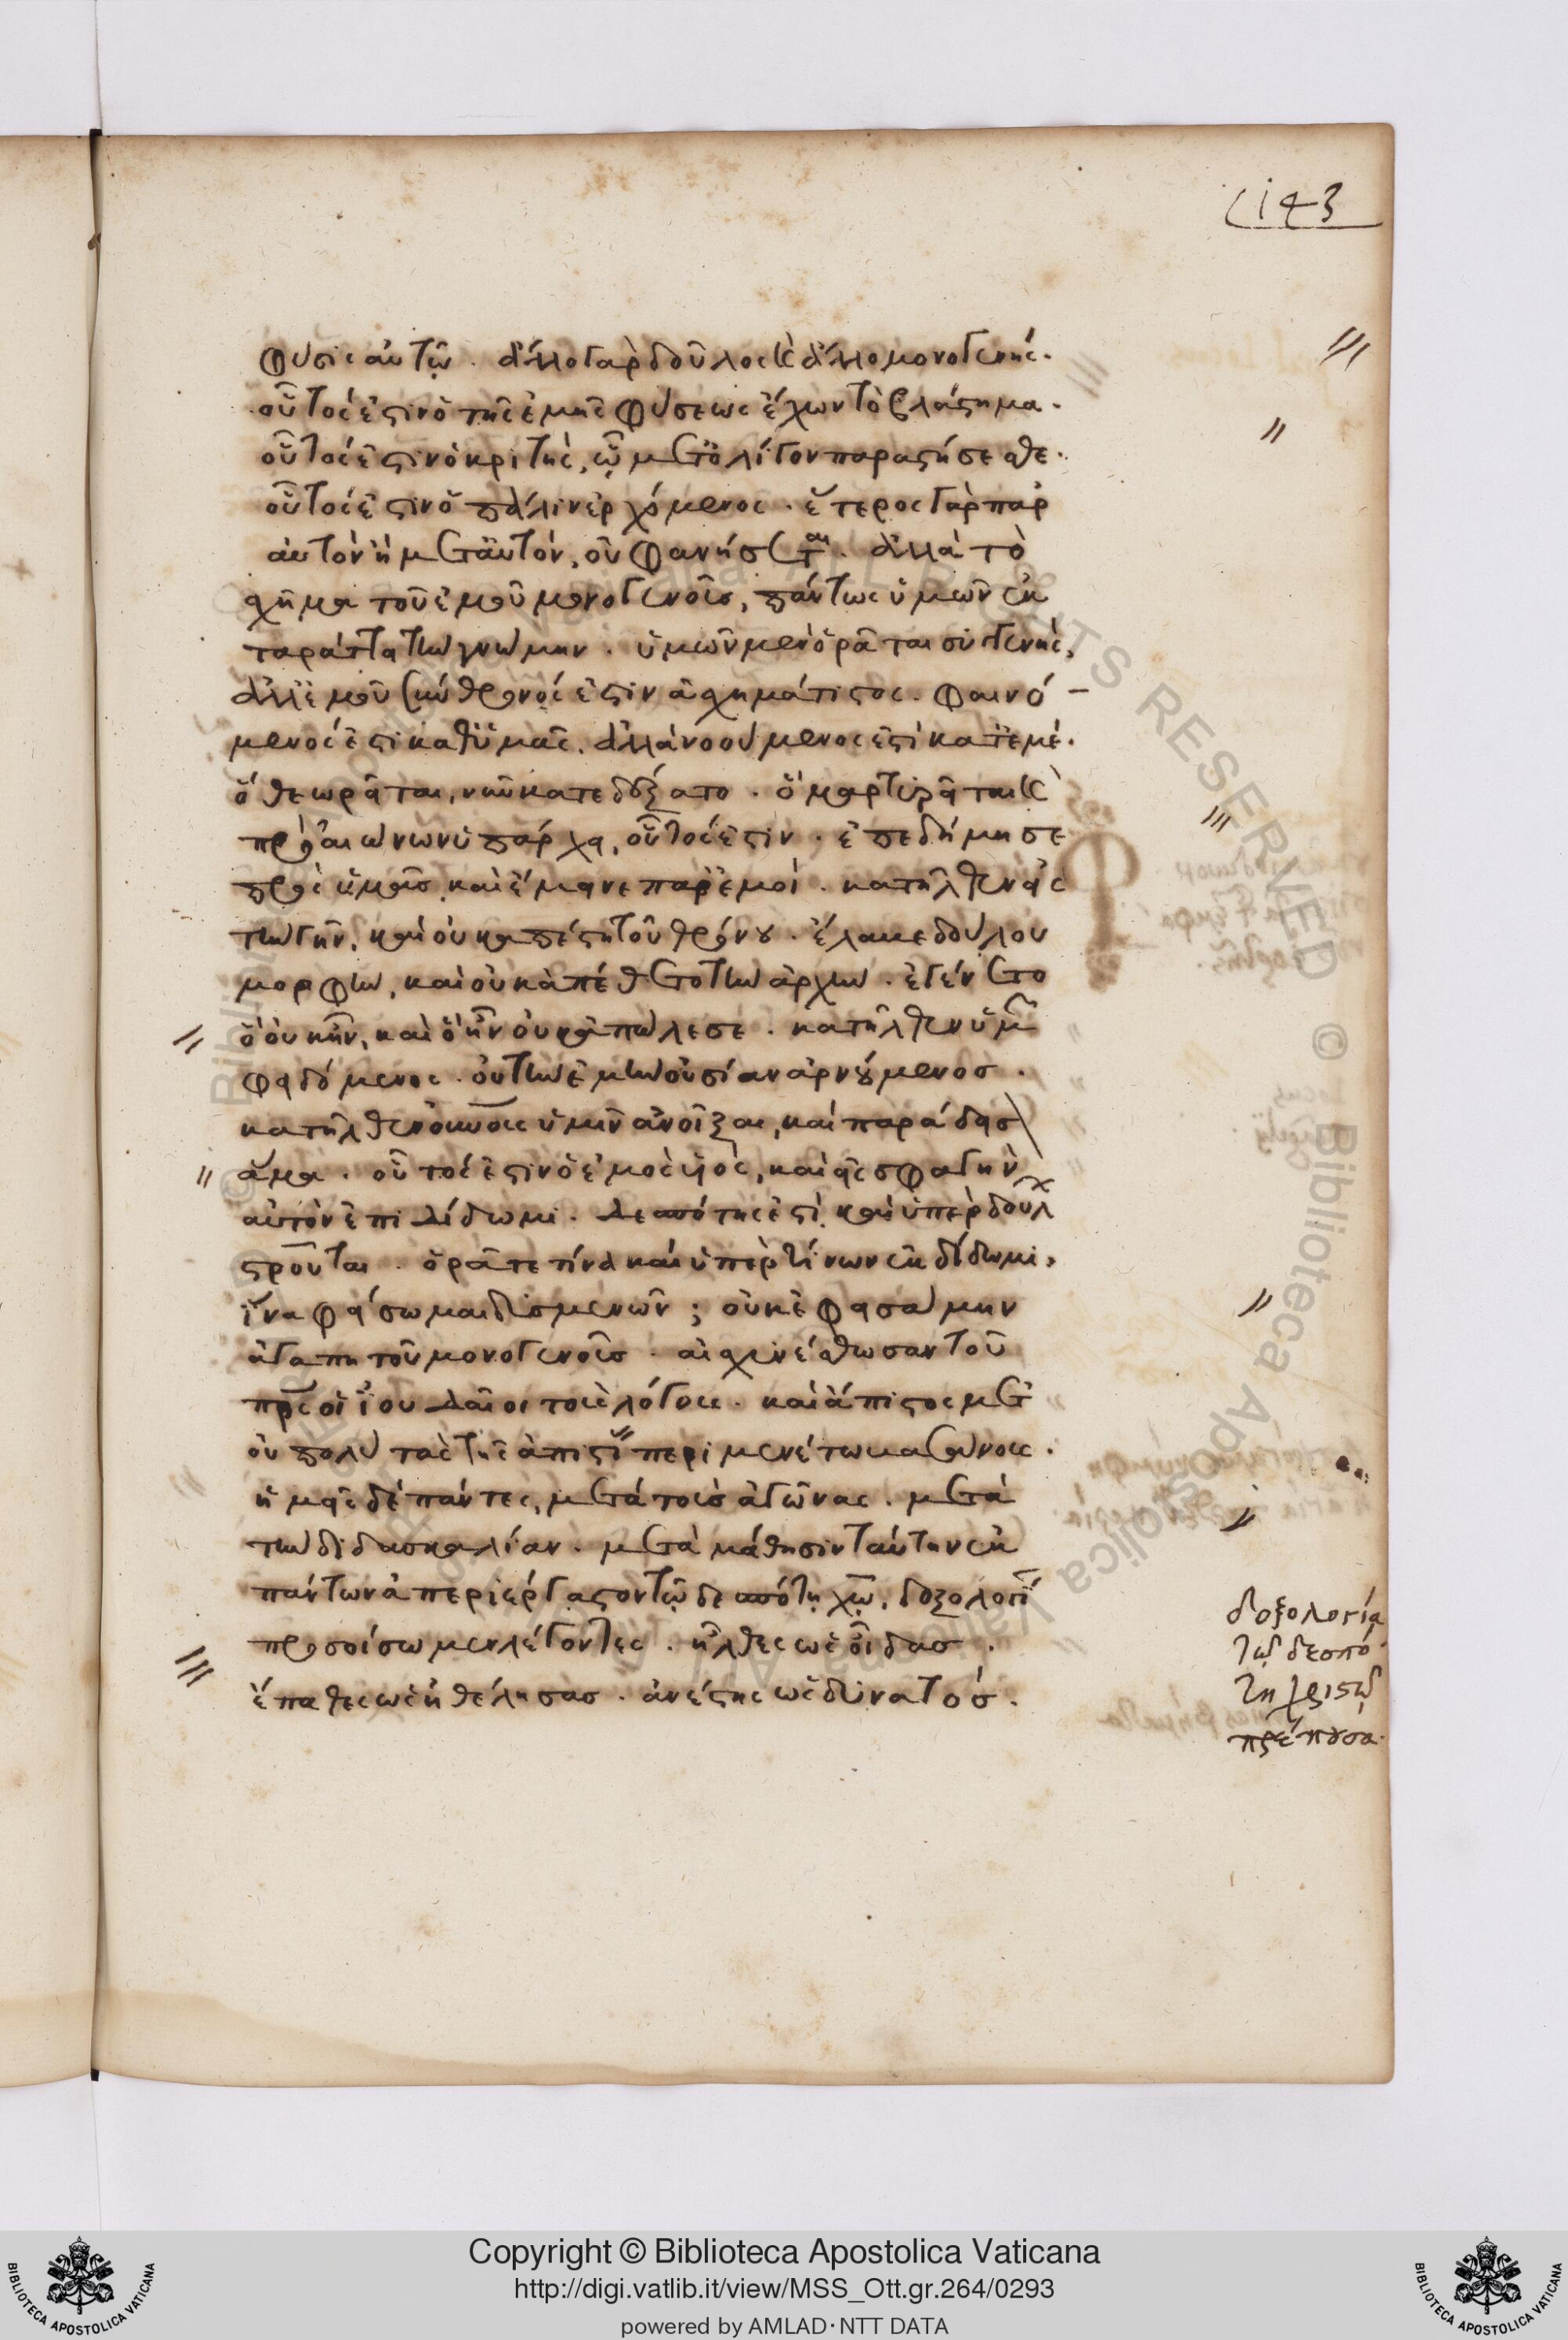 143
φύσις αὐτῷ. ἄλλο γὰρ δοῦλος κ(αὶ) ἄλλο μονογενής.
οὗτός ἐστιν ὁ τῆς ἐμῆς φύσεως ἔχων τὸ βλάστημα.
οὗτός ἐστιν ὁ κριτής, ᾧ μετ' ὀλίγον παραστήσεσθε.
οὗτός ἐστιν ὁ πάλιν ἐρχόμενος. ἕτερος γὰρ παρ'
αὐτὸν ἢ μετ' αὐτόν, οὐ φανήσεται. ἀλλὰ τὸ
σχῆμα τοῦ ἐμοῦ μονογενοῦς, πάντως ὑμῶν ἐκ
ταράττει τὴν γνώμην. ὑμῶν μὲν ὁρᾶται συγγενής,
ἀλλ' ἐμοῦ σύνθρονός ἐστιν ἀσχημάτιστος. φαινό-
μενός ἐστι καθ' ὑμᾶς. ἀλλὰ νοούμενος ἐστὶ κατ' ἐμέ.
ὃ θεωρᾶται, νῦν κατεδέξατο. ὃ μαρτυρᾶται κ(αὶ)
πρὸ αἰώνων ὑπάρχει, οὗτός ἐστιν. ἐπεδήμησε
πρὸς ὑμᾶς, καὶ ἔμεινε παρ' ἐμοί. κατῆλθεν εἰς
τὴν γῆν, καὶ οὐκ ἀπέστη τοῦ θρόνου. ἔλαβε δούλου
μορφήν, καὶ οὐκ ἀπέθετο τὴν ἀρχήν. ἐγένετο
ὃ οὐκ ἦν, καὶ ὃ ἦν οὐκ ἀπώλεσε. κατῆλθεν ὑμῶν
φειδόμενος. οὐ τὴν ἐμὴν οὐσίαν ἀρνούμενος.
κατῆλθεν οὐνοὺς ὑμῖν ἀνοῖξαι, καὶ παράδεισ
ἅμα. οὗτός ἐστιν ὁ ἐμὸς υἱός, καὶ εἰς σφαγὴν
αὐτὸν ἐπιδίδωμι. δεσπότης ἐστί, καὶ ὑπὲρ δούλ
στροῦται. ὁρᾶτε τίνα καὶ ὑπὲρ τίνων ἐκδίδωμι,
ἵνα φείσωμαι δεσμενῶν; οὐκ ἐφεισάμην
ἀγαπητοῦ μονογενοῦς. αἰσχυνέσθωσαν τοῦ
πρς οἱ ἰουδαῖοι τοῖς λόγοις. καὶ ἄπιστος μετ'
οὐ πολὺ τὰς τῆς ἀπιστί περιμενέτω
ἡμεῖς δὲ πάντες, μετὰ τοὺς ἀγῶνας. μετὰ
τὴν διδασκαλίαν. μετὰ μάθησιν ταύτην ἐκ
πάντων ἀπεριέργαστον τῷ δεσπότῃ χῷ, δοξολογί
προσοίσωμεν λέγοντες. ἦλθες ὡς οἶδας.
ἔπαθες ὡς ἠθέλησας. ἀνέστης ὡς δυνατός.
δοξολογία
τῷ δεσπό
τῃ χριστῷ
πρέπουσα.
Copyright © Biblioteca Apostolica Vaticana
http://digi.vatlib.it/view/MSS_Ott.gr.264/0293
powered by AMLAD·NTT DATA
BIBLIOTECA APOSTOLICA VATICANA
BIBLIOTECA APOSTOLICA VATICANA